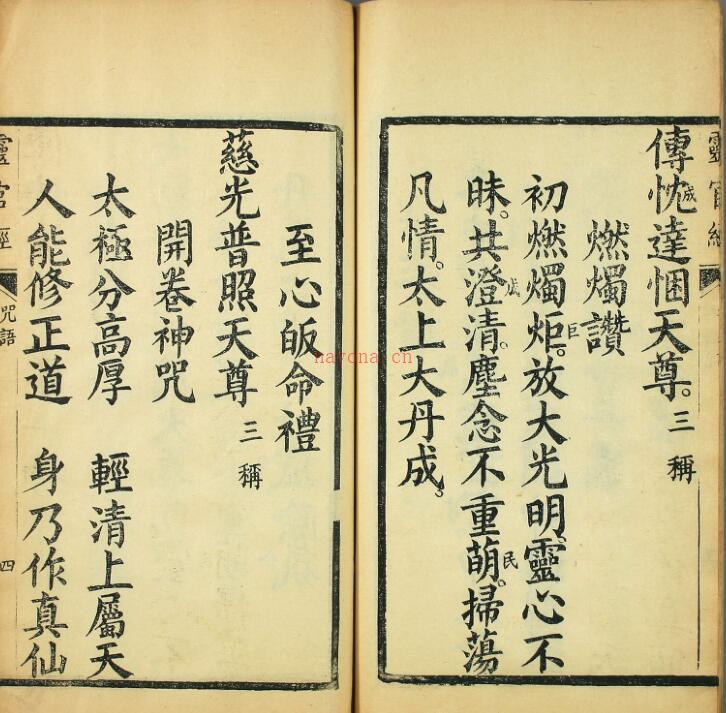 靈官經
傳忱達悃天尊。三稱
成
燃燭讚
初燃燭炬。放大光明。靈心不
巨
昧。共澄清。塵念不重萌。掃蕩
民
凡情。太上大丹成。
至心皈命禮
慈光普照天尊 三稱
開卷神咒
太極分高厚 輕清上屬天
人能修正道 身乃作真仙
靈官經 咒語 四
nayona.cn